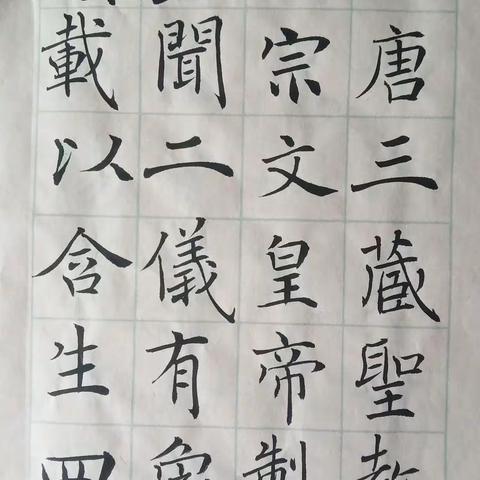 唐三藏聖教
宗文皇帝製
聞二儀有象
載以含生四